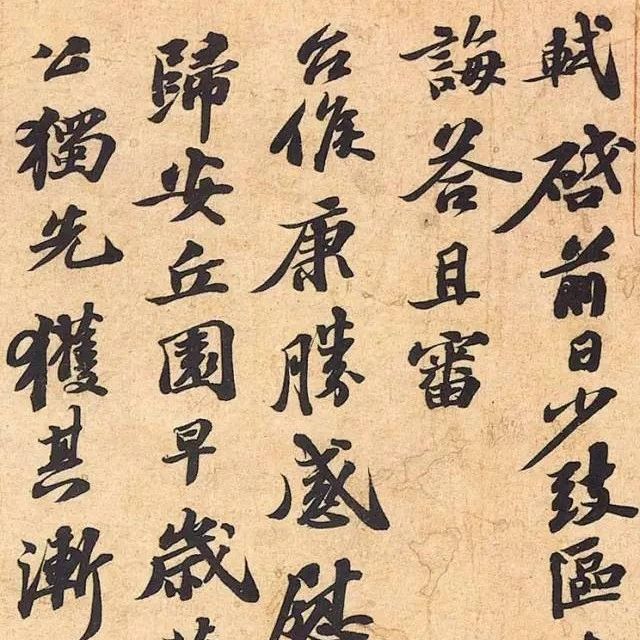 軾啓前日少致區
誨荅且審
台候康勝感慰
歸安丘園早歲
公獨先獲其漸